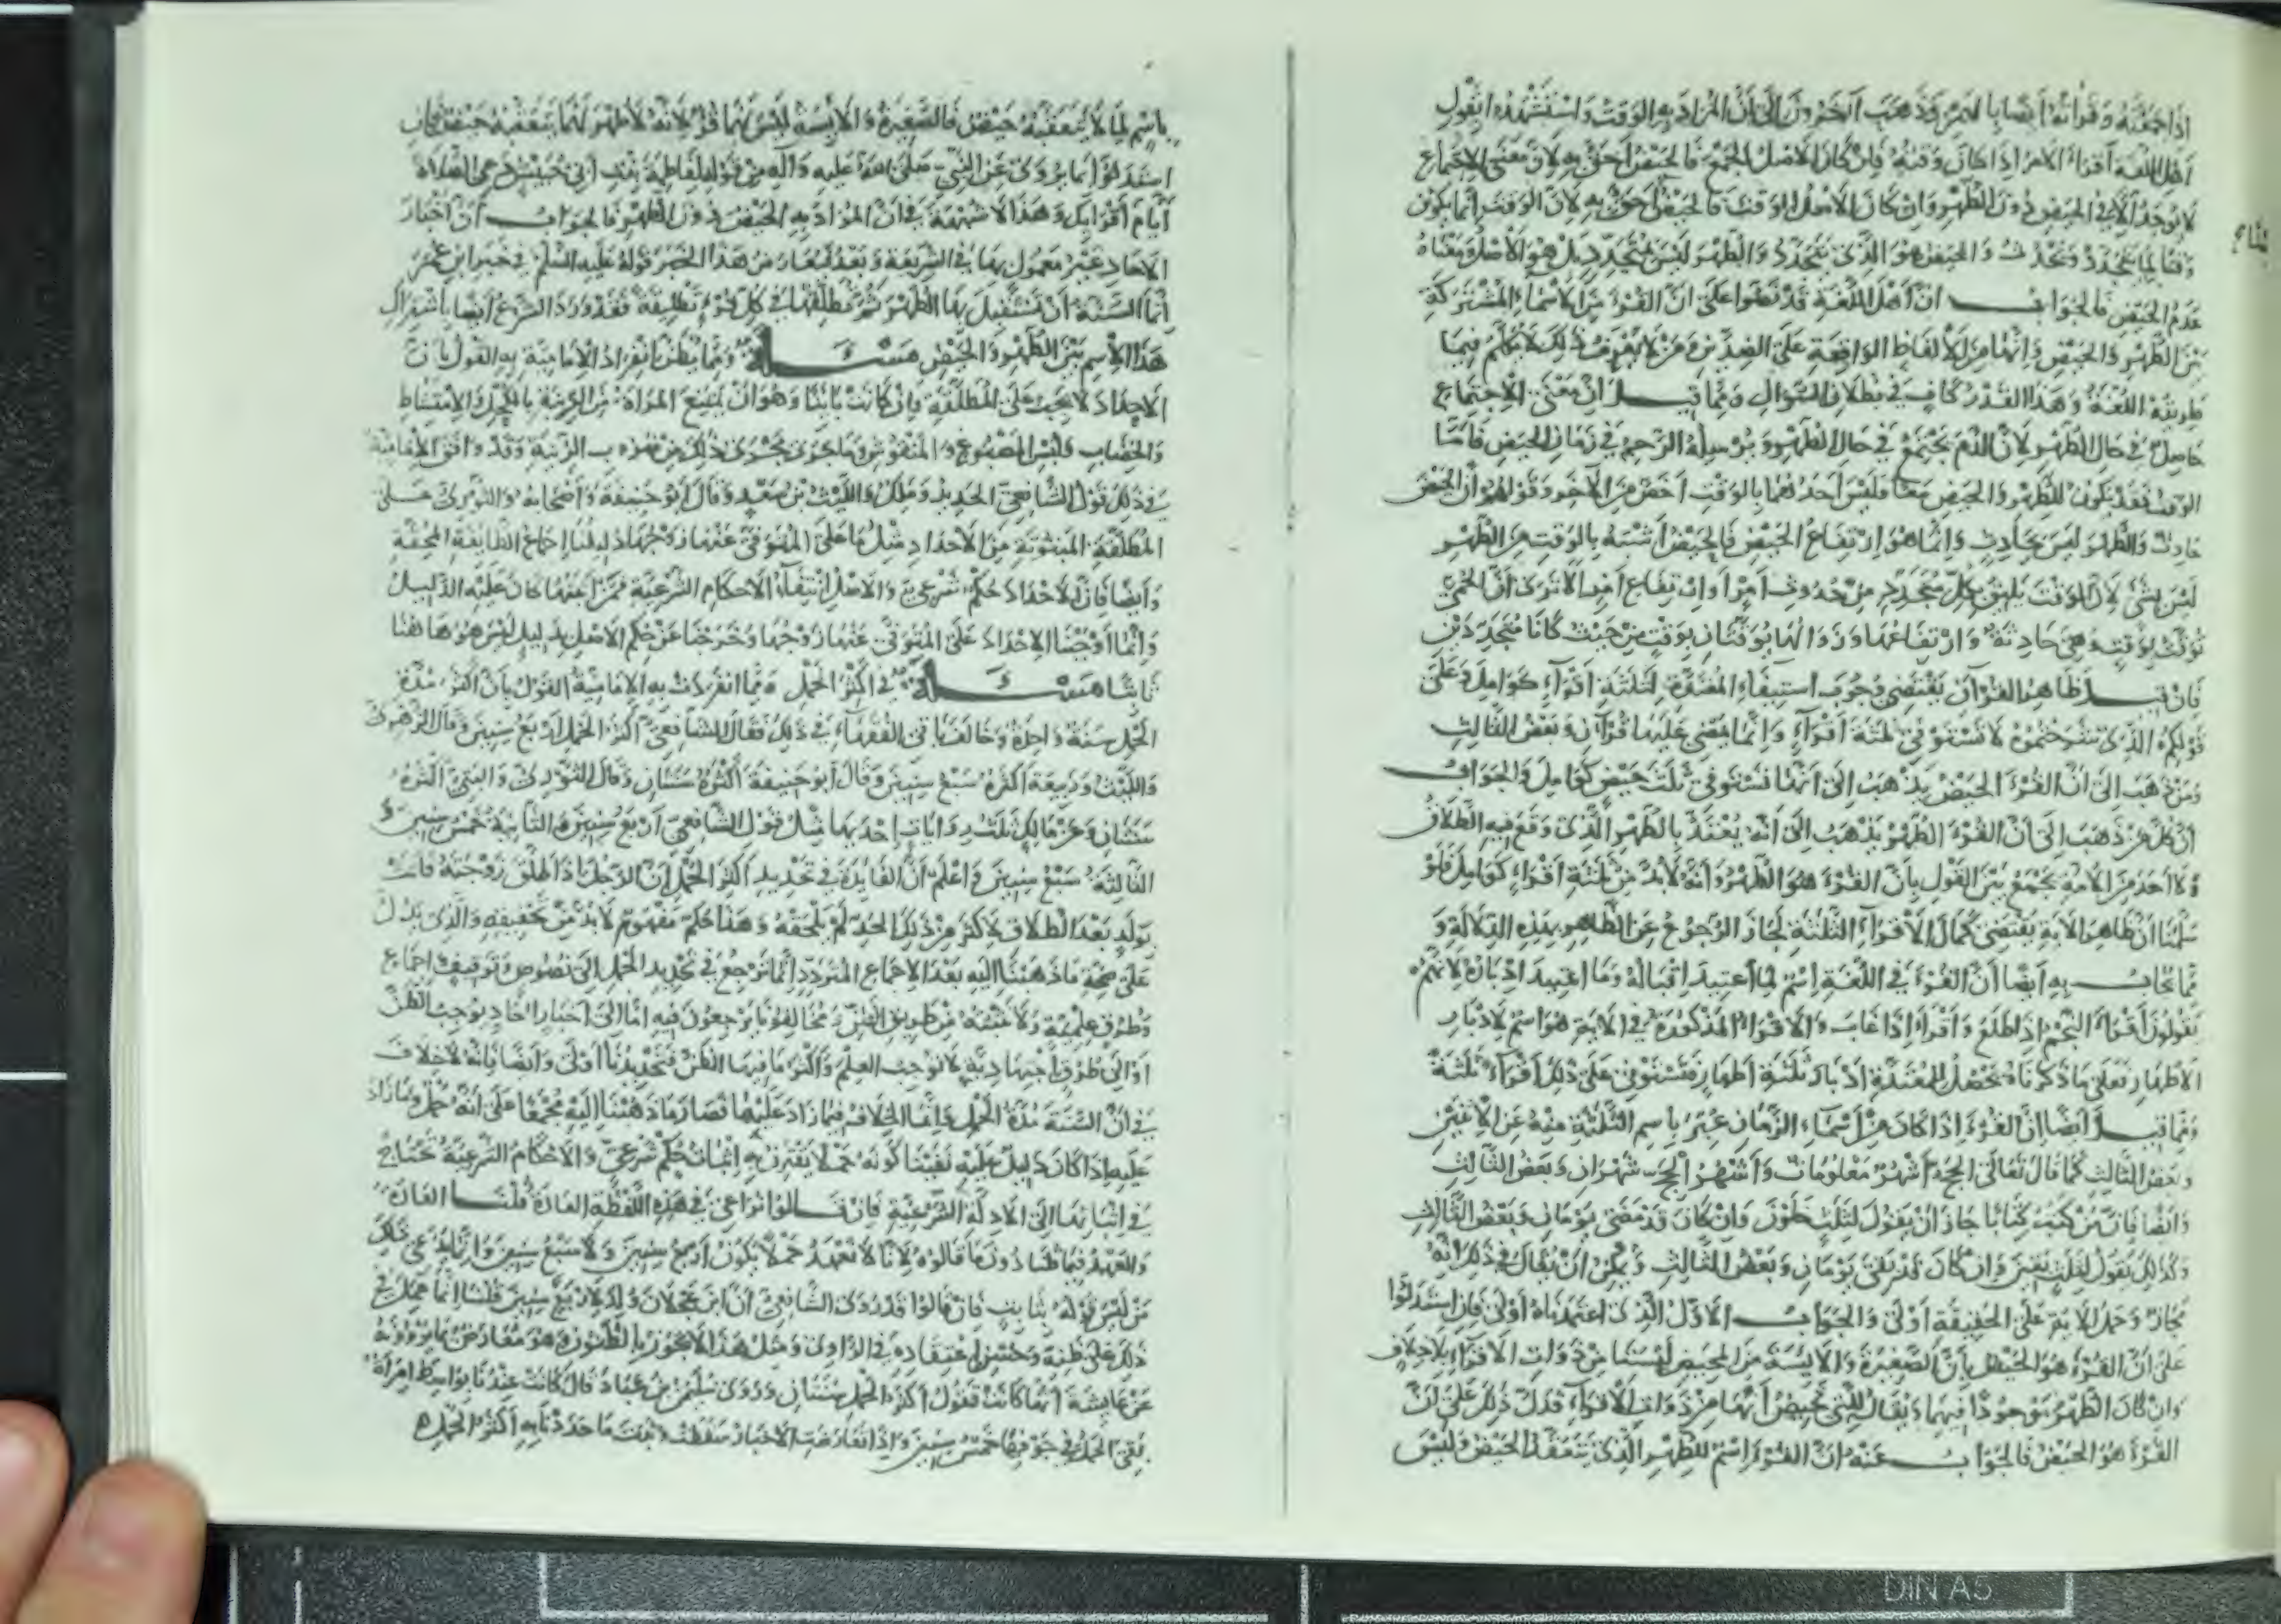 اذا جمعته وقراته ايضا بالهمز وقد ذهب آخرون الى ان المراد به الوقت واستشهدوا بقول
اهل اللغة اقرأ الامر اذا حان وقته فان كان الاصل الجمع فالحيض احق به لان معنى الاجتماع
لا يوجد الا في الحيض دون الطهر وان كان الاصل الوقت فالحيض احق به لان الوقت انما يكون
وقتا لما يتجدد ويحدث والحيض هو الذي يتجدد والطهر ليس بمتجدد بل هو الاصل ومعناه
عدم الحيض فالجواب ان اهل اللغة قد نصوا على ان القرء من الاسماء المشتركة
بين الطهر والحيض وانها من الالفاظ الواقعة على الضدين ومن لا يعرف ذلك لا يكلم فيما
طريقه اللغة وهذا القدر كاف في بطلان السؤال ومما قيل ان معنى الاجتماع
حاصل في حال الطهر لان الدم يجتمع في حال الطهر ويرسله الرحم في زمان الحيض فاما
الوقت فقد يكون للطهر والحيض معا فليس احدهما بالوقت اخص من الآخر وقولهم ان الحيض
حادث والطهر ليس بحادث وانما هو ارتفاع الحيض فالحيض اشبه بالوقت من الطهر
ليس بشئ لان الوقت يليق بكل متجدد من حدوث امر او ارتفاع امر الا ترى ان الحمى
توقت بوقت وهي حادثة وارتفاعها وزوالها يوقتان بوقت من حيث كانا متجددين
فان قيل ظاهر القرآن يقتضي وجوب استيفاء المعتدة لثلثة اقراء كوامل وعلى
قولكم الذي شرحتموه لا تستوفي ثلثة اقراء وانما يمضي عليها قرآن وبعض الثالث
ومن ذهب الى ان القرء الحيض يذهب الى انها تستوفي ثلث حيض كوامل والجواب
ان كل من ذهب الى ان القرء الطهر يذهب الى انه يعتد بالطهر الذي وقع فيه الطلاق
ولا احد من الامة يجمع بين القول بان القرء هو الطهر وانه لابد من ثلثة اقراء كوامل فلو
سلمنا ان ظاهر الاية يقتضي كمال الاقراء الثلثة لجاز الرجوع عن الظاهر بهذه الدلالة و
مما يجاب به ايضا ان القرء في اللغة اسم لما اعتيد اقباله وما اعتيد ادباره لانهم
يقولون اقرأ النجم اذا طلع واقرأ اذا غاب والاقراء المذكورة في الاية هو اسم لادبار
الاطهار فعلى ما ذكرناه تحصل للمعتدة ادبار ثلثة اطهار فتستوفي على ذلك اقراء ثلثة
ومما قيل ايضا ان القرء اذا كان من اسماء الزمان عبر باسم الثلثة منه عن الاثنين
وبعض الثالث كما قال تعالى الحج اشهر معلومات واشهر الحج شهران وبعض الثالث
وايضا فان من كتب كتابا جاز ان يقول لثلث خلون وان كان قد مضى يومان وبعض الثالث
وكذلك يقول لثلث بقين وان كان قد بقي يومان وبعض الثالث ويمكن ان يقال في ذلك انه
مجاز وحمل الاية على الحقيقة اولى والجواب الاول الذي اعتمدناه اولى فان استدلوا
على ان القرء هو الحيض بان الصغيرة والآيسة من المحيض ليستا من ذوات الاقراء بلا خلاف
وان كان الطهر موجودا فيهما ويقال للتي تحيض انها من ذوات الاقراء فدل ذلك على ان
القرء هو الحيض فالجواب عنه ان القرء اسم للطهر الذي يتعقبه الحيض وليس
باسم لما لا يتعقبه حيض فالصغيرة والآيسة ليس لهما قرء لانه لا طهر لهما يتعقبه حيض فان
استدلوا بما يروى عن النبي صلى الله عليه وآله من قوله لفاطمة بنت ابي حبيش دعي الصلاة
ايام اقرائك وهذا لا شبهة في ان المراد به الحيض دون الطهر فالجواب ان اخبار
الآحاد غير معمول بها في الشريعة وبعد فيعارض هذا الخبر قوله عليه السلم في خبر ابن عمر
انما السنة ان تستقبل بها الطهر ثم تطلقها في كل قرء تطليقة فقد ورد الشرع ايضا باشتراك
هذا الاسم بين الطهر والحيض مسئلة ومما يظن انفراد الامامية به القول بان
الاحداد لا يجب على المطلقة وان كانت بائنا وهو ان تمتنع المراة من الزينة بالكحل والامتشاط
والخضاب ولبس المصبوغ والمنقوش وما جرى مجرى ذلك من ضروب الزينة وقد وافق الامامية
في ذلك قول الشافعي الجديد ومالك والليث بن سعد وقال ابو حنيفة واصحابه والثوري على
المطلقة المبتوتة من الاحداد مثل ما على المتوفى عنها زوجها دليلنا اجماع الطائفة المحقة
وايضا فان الاحداد حكم شرعي والاصل انتفاء الاحكام الشرعية فمن اثبتها كان عليه الدليل
وانما اوجبنا الاحداد على المتوفى عنها زوجها وخرجنا عن حكم الاصل بدليل ليس هو هاهنا
ثابتا مسئلة في اكثر الحمل ومما انفردت به الامامية القول بان اكثر مدة
الحمل سنة واحدة وخالف باقي الفقهاء في ذلك فقال الشافعي اكثر الحمل اربع سنين وقال الزهري
والليث وربيعة اكثره سبع سنين وقال ابو حنيفة اكثره سنتان وقال الثوري والبتي اكثره
سنتان وعن مالك ثلث روايات احديها مثل قول الشافعي اربع سنين والثانية خمس سنين و
الثالثة سبع سنين واعلم ان الفايدة في تحديد اكثر الحمل ان الرجل اذا طلق زوجته فاتت
بولد بعد الطلاق لاكثر من ذلك الحد لم يلحقه وهذا حكم مفهوم لابد من تحقيقه والذي يدل
على صحة ما ذهبنا اليه بعد الاجماع المتردد انما نرجع في تحديد الحمل الى نصوص وتوقيف واجماع
وطرق علمية ولا نثبته من طريق الظن ومخالفونا يرجعون فيه اما الى اخبار آحاد توجب الظن
او الى طرق اجتهادية لا توجب العلم واكثر ما فيها الظن فتحديدنا اولى وايضا فانه لا خلاف
في ان السنة مدة الحمل وانما الخلاف فيما زاد عليها فصار ما ذهبنا اليه مجمعا على انه حمل وما زاد
عليه اذا كان لا دليل عليه نفينا كونه حملا يقترن به اثبات حكم شرعي والاحكام الشرعية تحتاج
في اثباتها الى الادلة الشرعية فان قالوا نراعي في هذه اللفظة العادة قلنا العادة
والعهد فيما قلنا دون ما قالوه لانا لا نعهد حملا يكون اربع سنين ولا سبع سنين
من ليس قوله بثابت فان قالوا قد روى الشافعي ان ابن عجلان ولد لاربع سنين قلنا انما عمل في
ذلك على ظنه وحسن اعتقاده في الراوي ومثل هذا لا يجوز بالظنون وهو معارض بما يروونه
عن عايشة انها كانت تقول اكثر الحمل سنتان وروى سليمن بن عباد قال كانت عندنا بواسط امراة
بقي الحمل في جوفها خمس سنين واذا تعارضت الاخبار سقطت وثبت ما حددنا به اكثر الحمل